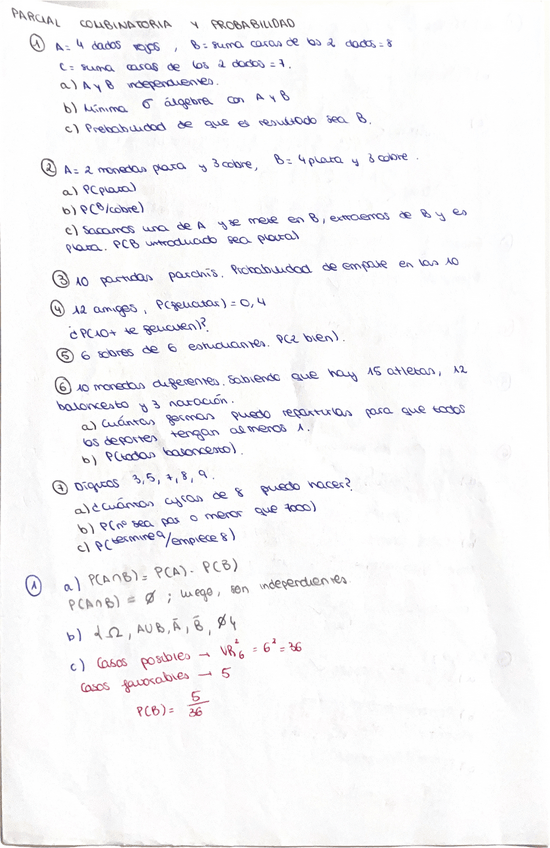 PARCIAL COMBINATORIA Y PROBABILIDAD
① A = 4 dados rojos , B = suma caras de los 2 dados = 8
C = suma caras de los 2 dados = 7.
a) A y B independientes.
b) Mínima σ álgebra con A y B
c) Probabilidad de que el resultado sea B.
② A = 2 monedas plata y 3 cobre, B = 4 plata y 3 cobre.
a) P(plata)
b) P(B/cobre)
c) Sacamos una de A y se mete en B, extraemos de B y es
plata. P(B introducido sea plata)
③ 10 partidas parchís. Probabilidad de empate en las 10
④ 12 amigos, P(felicitar) = 0,4
¿P(10+ te feliciten)?
⑤ 6 sobres de 6 estudiantes. P(2 bien).
⑥ 10 monedas diferentes. Sabiendo que hay 15 atletas, 12
baloncesto y 3 natación.
a) Cuántas formas puedo repartirlas para que todos
los deportes tengan al menos 1.
b) P(todas baloncesto).
⑦ Dígitos 3, 5, 7, 8, 9.
a) ¿Cuántas cifras de 8 puedo hacer?
b) P(nº sea par o menor que 7000)
c) P(termine 9/empiece 8)
① a) P(A∩B) = P(A) · P(B)
P(A∩B) = Ø ; luego, son independientes.
b) {Ω, A∪B, Ā, B̄, Ø}
c) Casos posibles → VR₆² = 6² = 36
Casos favorables → 5
P(B) = 5/36